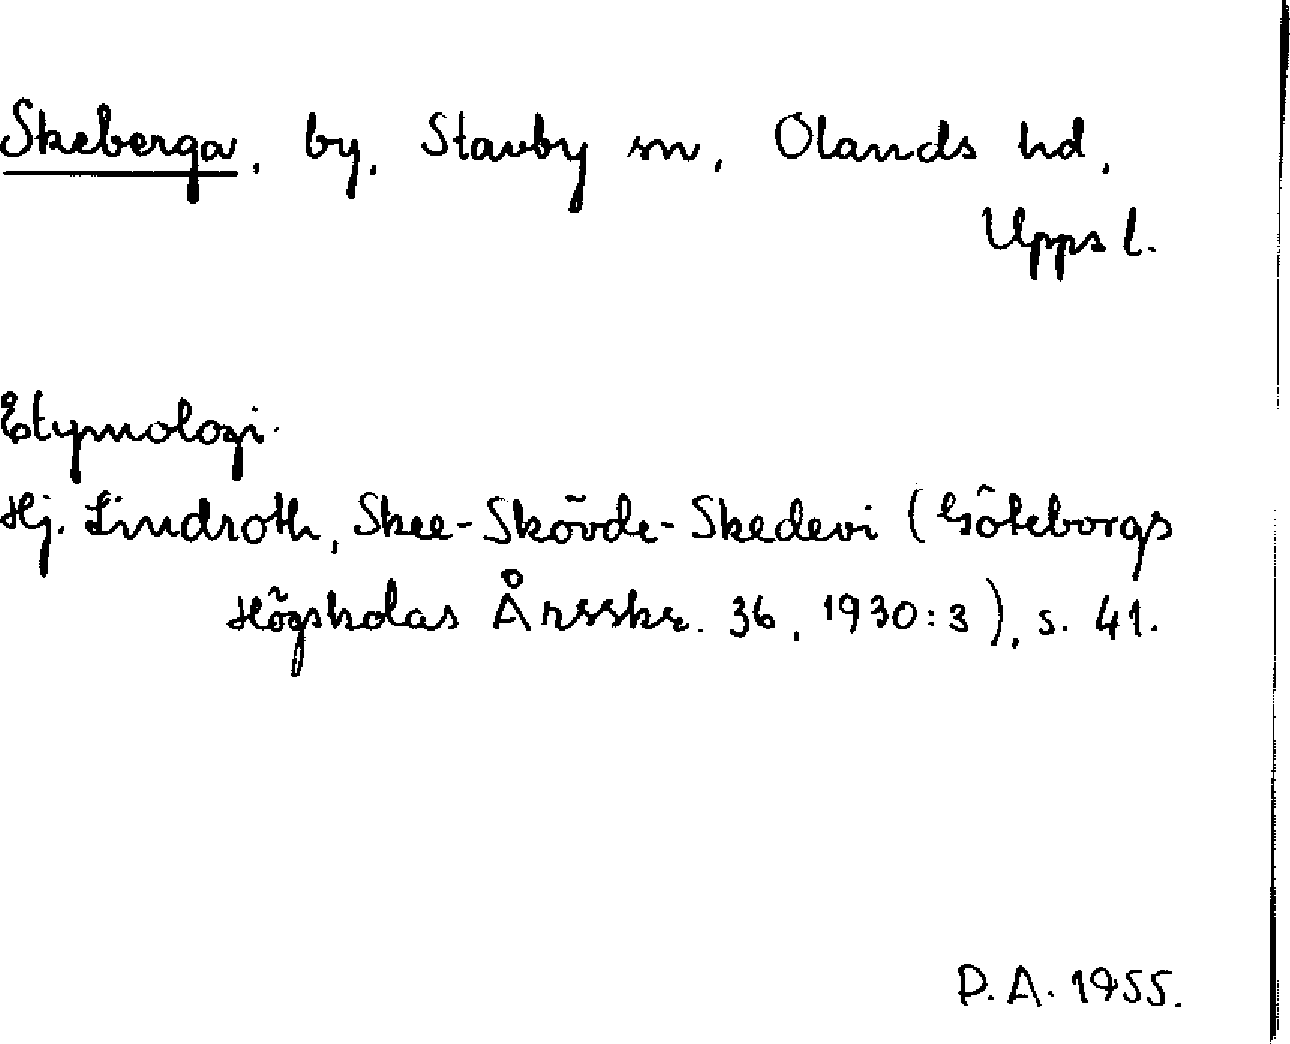 Skeberga, by, Stavby sn, Olands hd,
Upps l.
Etymologi.
Hj. Lindroth, Skee-Skövde-Skedevi (Göteborgs
Högskolas Årsskr. 36, 1930:3), s. 41.
P.A. 1955.